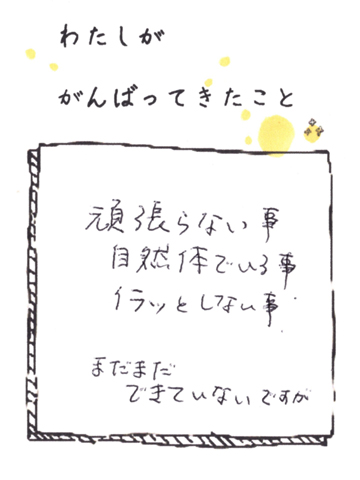 わたしが
がんばってきたこと
頑張らない事
自然体でいる事
イラッとしない事.
まだまだ
できていないですが